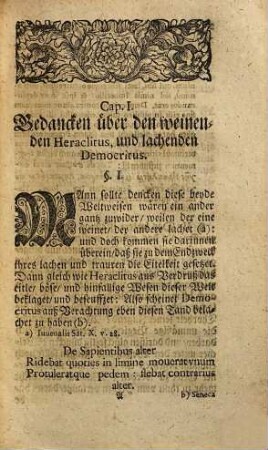 Cap. I.
Gedancken über den weinen-
den Heraclitus, und lachenden
Democritus.
§. I.
MAnn sollte dencken diese beyde
Weltweisen wären ein ander
gantz zuwider/ weilen der eine
weinet/ der andere lachet (a):
und doch kommen sie darinnen
überein/ daß sie zu dem Endzweck
ihres lachen und trauren die Eitelkeit gesetzet.
Dann gleich wie Heraclitus aus Verdruß das
eitle/ böse/ und hinfällige Wesen dieser Welt
beklaget/ und beseuffzet: Also scheinet Demo-
critus aus Verachtung eben diesen Tand bela-
chet zu haben (b).
a) Iuuenalis Sat. X. v. 28.
De Sapientibus alter
Ridebat quoties in limine mouerat vnum
Protuleratque pedem: flebat contrarius
alter.
A b) Seneca